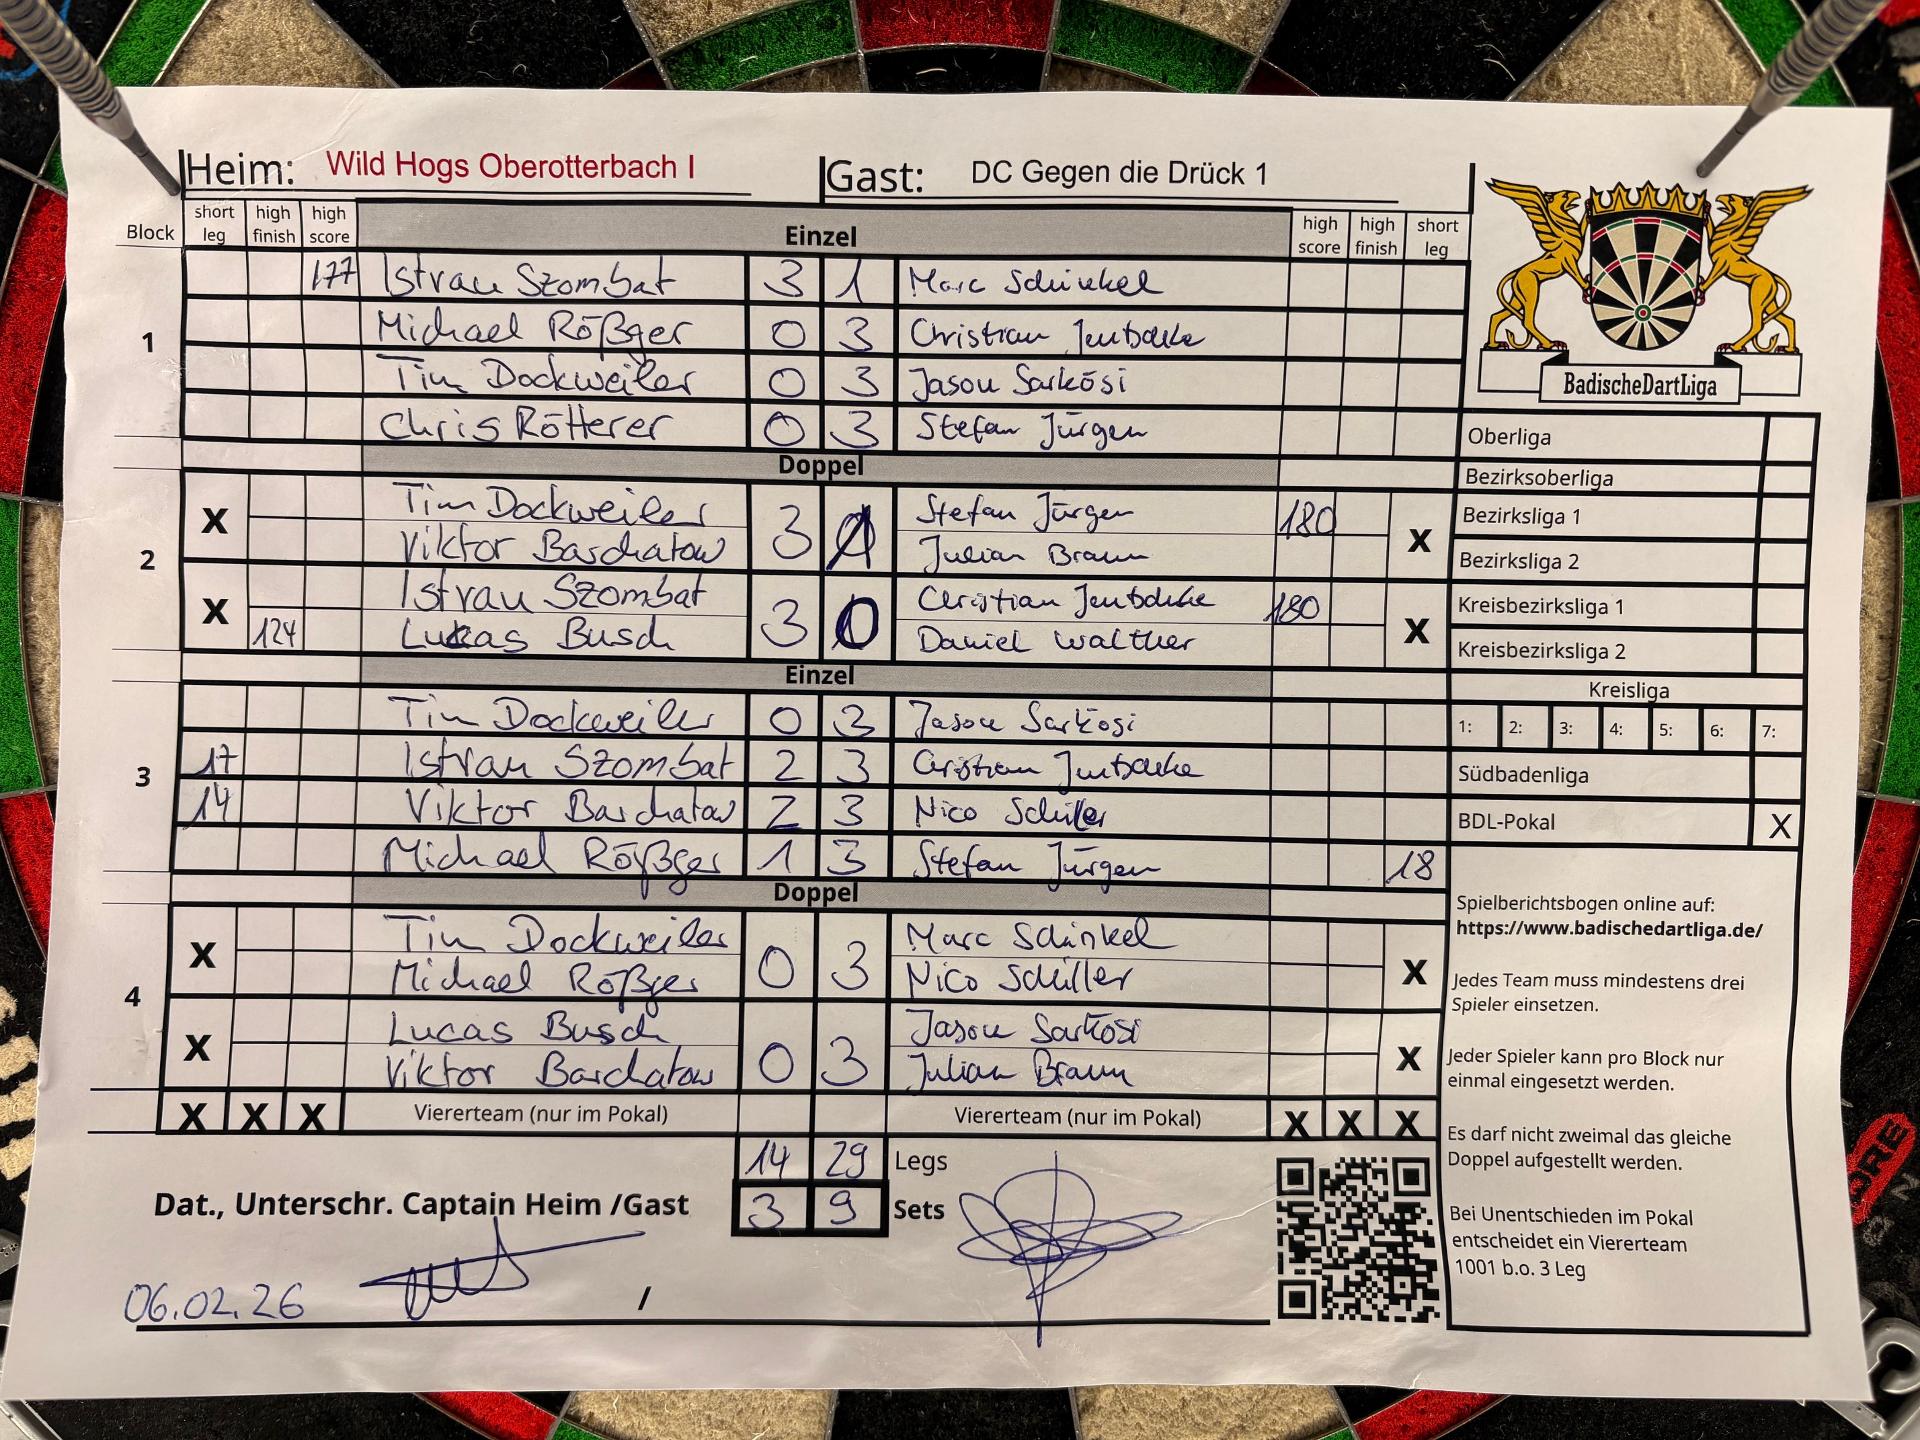 Heim: Wild Hogs Oberotterbach I Gast: DC Gegen die Drück 1
Block short leg high finish high score Einzel high score high finish short leg
1
177 Istvan Szombat 3 1 Marc Schinkel
Michael Rößger 0 3 Christian Jentschke
Tim Dockweiler 0 3 Jason Sarkösi
Chris Rötterer 0 3 Stefan Jürgen
Doppel
2
X Tim Dockweiler 3 Stefan Jürgen 180 X
Viktor Barchatow Julian Braun
X Istvan Szombat 3 0 Christian Jentschke 180 X
124 Lukas Busch Daniel Walther
Einzel
3
Tim Dockweiler 0 3 Jason Sarkösi
17 Istvan Szombat 2 3 Christian Jentschke
14 Viktor Barchatow 2 3 Nico Schiller
Michael Rößger 1 3 Stefan Jürgen 18
Doppel
4
X Tim Dockweiler 0 3 Marc Schinkel X
Michael Rößger Nico Schiller
X Lucas Busch 0 3 Jason Sarkösi X
Viktor Barchatow Julian Braun
X X X Viererteam (nur im Pokal) Viererteam (nur im Pokal) X X X
14 29 Legs
Dat., Unterschr. Captain Heim /Gast 3 9 Sets
06.02.26 /
BadischeDartLiga
Oberliga
Bezirksoberliga
Bezirksliga 1
Bezirksliga 2
Kreisbezirksliga 1
Kreisbezirksliga 2
Kreisliga
1: 2: 3: 4: 5: 6: 7:
Südbadenliga
BDL-Pokal X
Spielberichtsbogen online auf:
https://www.badischedartliga.de/
Jedes Team muss mindestens drei
Spieler einsetzen.
Jeder Spieler kann pro Block nur
einmal eingesetzt werden.
Es darf nicht zweimal das gleiche
Doppel aufgestellt werden.
Bei Unentschieden im Pokal
entscheidet ein Viererteam
1001 b.o. 3 Leg